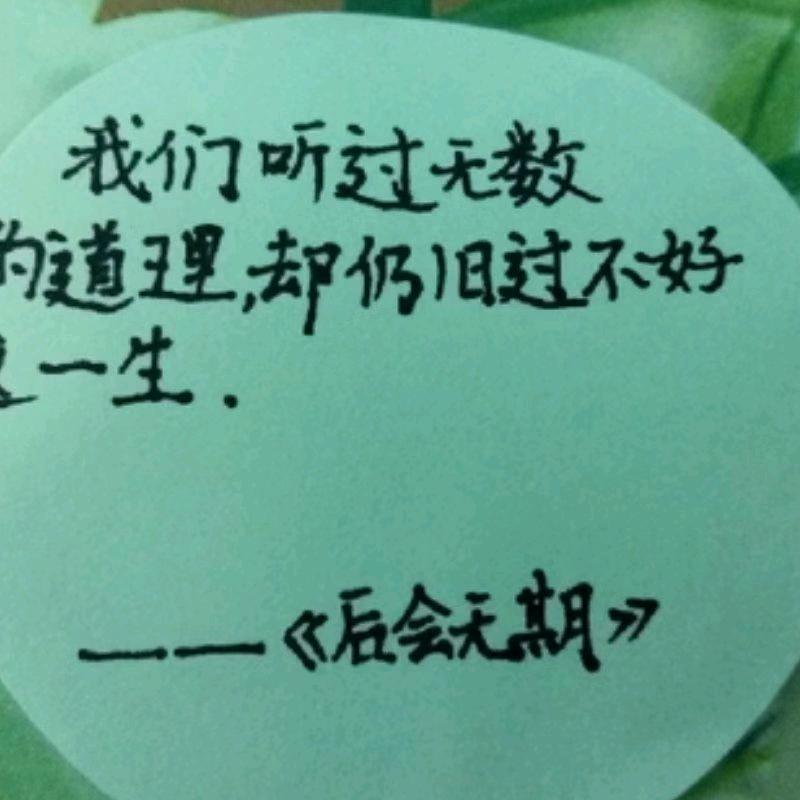 我们听过无数
的道理,却仍旧过不好
这一生.
——《后会无期》